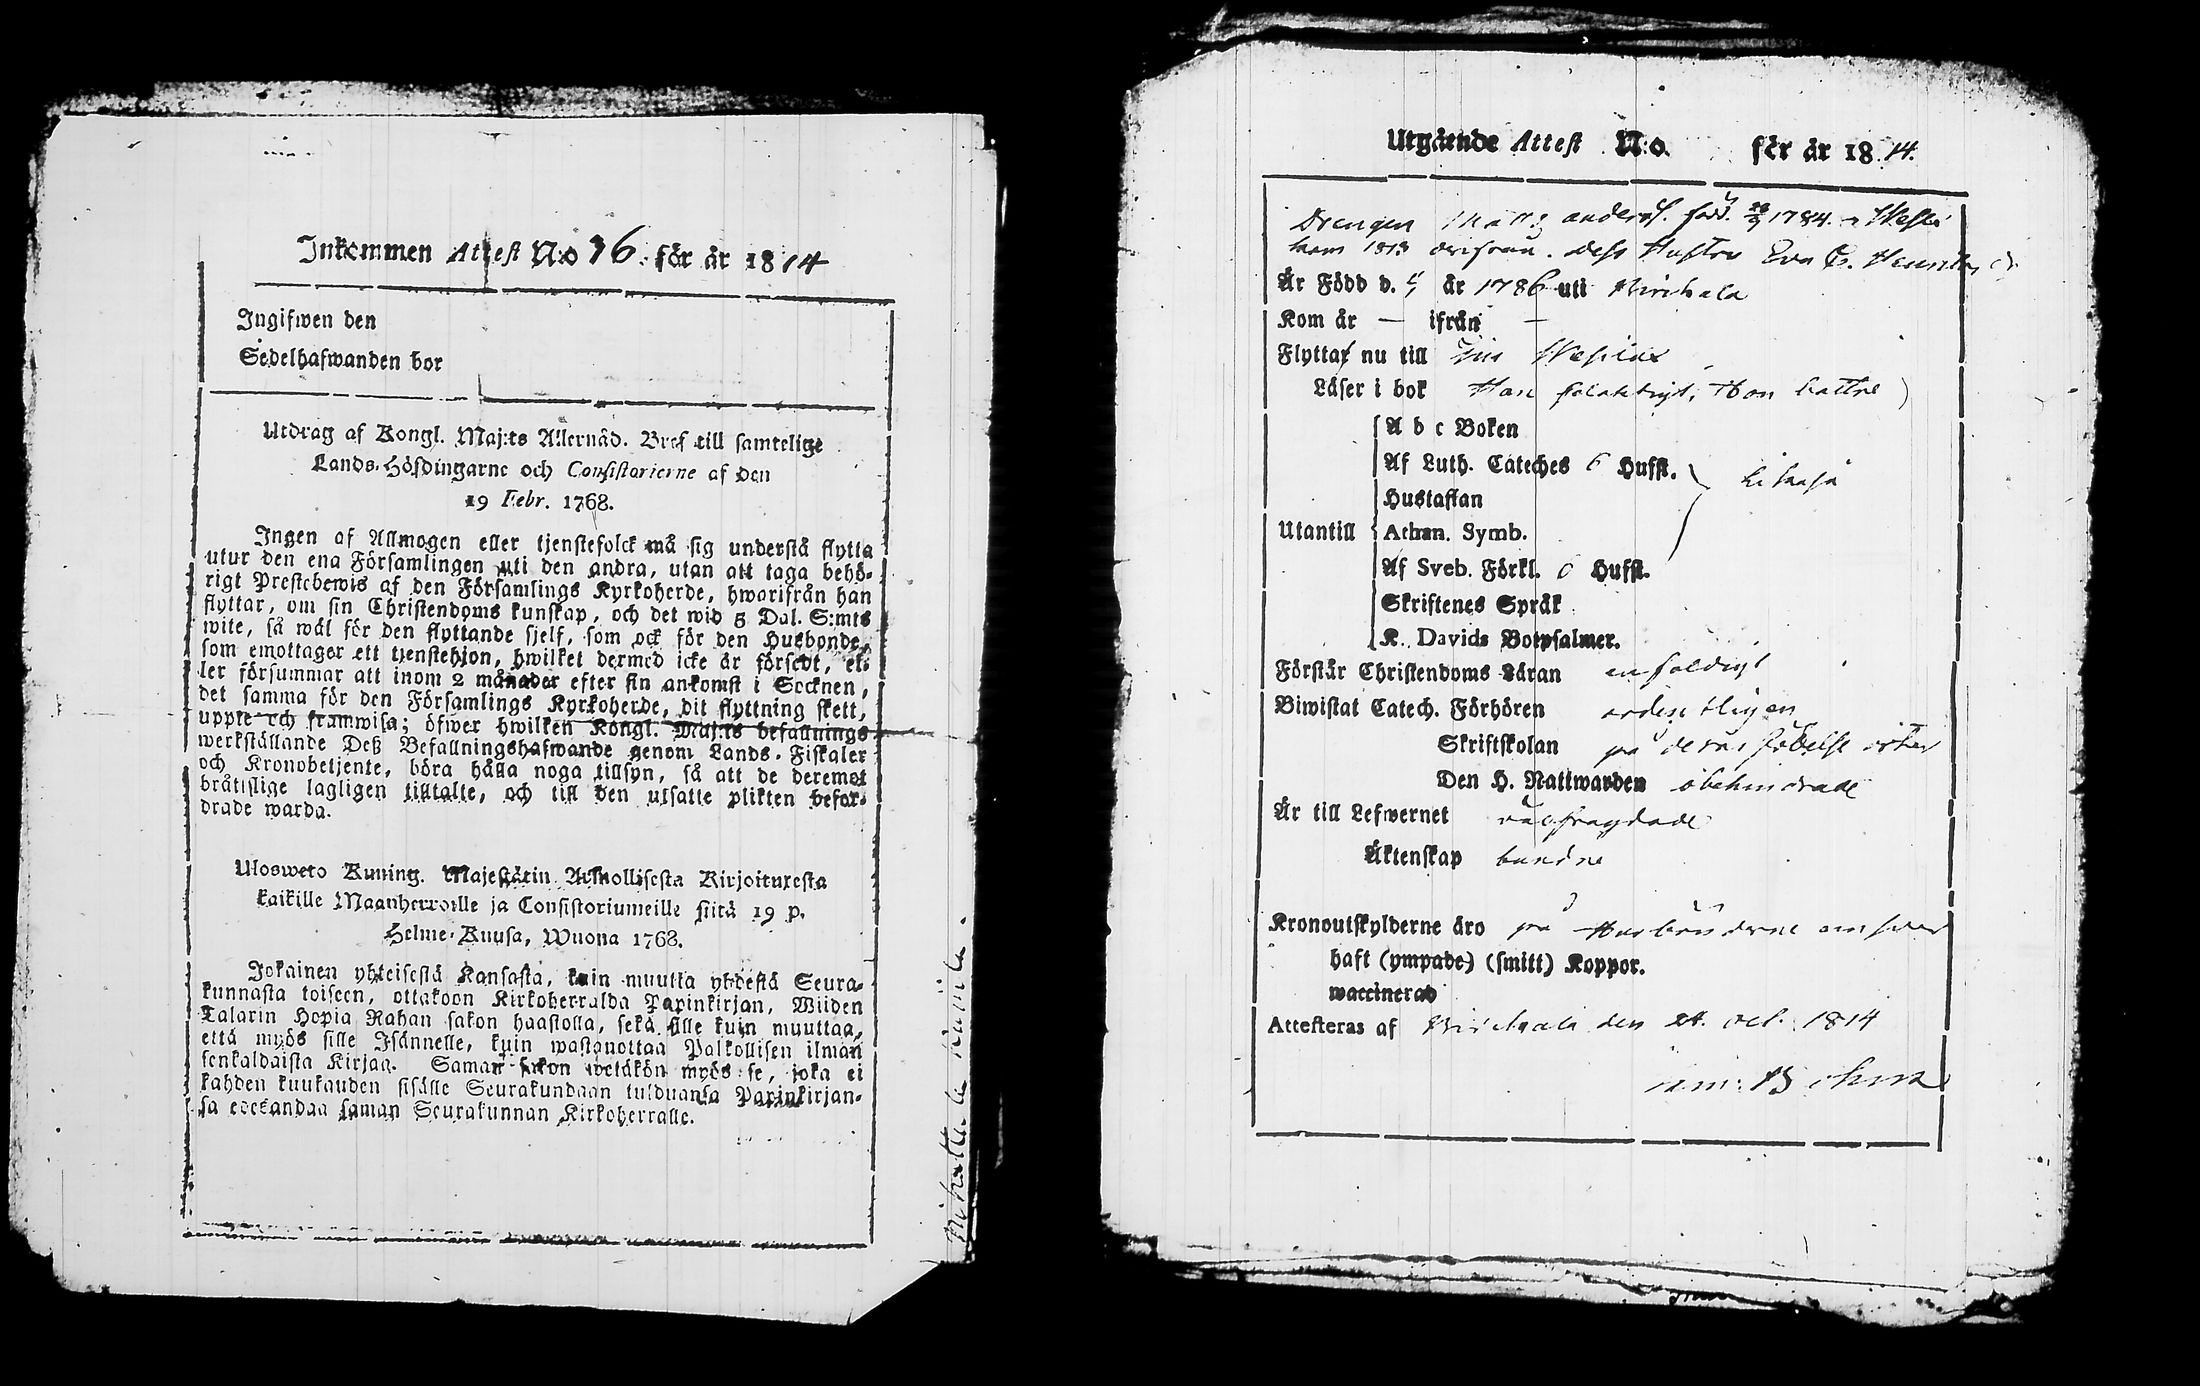 Inkommen Attest N:o 36. för år 1814
Ingifwen den
Sedelhafwanden bor
Utdrag af Kongl. Maj:ts Allernåd. Bref till samtelige
Lands-Höfdingarne och Consistorierne af den
19 Febr. 1768.
Ingen af Allmogen eller tjenstefolck må sig understå flytta
utur den ena Församlingen uti den andra, utan att taga behö-
rigt Prestebewis af den Församlings Kyrkoherde, hwarifrån han
flyttar, om sin Christendoms kunskap, och det wid 5 Dal. S:mts
wite, så wäl för den flyttande sjelf, som ock för den Husbonde,
som emottager ett tjenstehjon, hwilket dermed icke är försedt, el-
ler försummar att inom 2 månader efter sin ankomst i Socknen,
det samma för den Församlings Kyrkoherde, dit flyttning skett,
uppte och framwisa; öfwer hwilken Kongl. Maj:ts befallnings
werkställande Deß Befallningshafwande genom Lands-Fiskaler
och Kronobetjente, böra hålla noga tillsyn, så att de deremot
bråttslige lagligen tilltalte, och till den utsatte plikten befor-
drade warda.
Ulosweto Kuning. Majestätin Armollisesta Kirjoituxesta
kaikille Maanherroille ja Consistoriumeille siitä 19 p.
Helme-Kuusa, Wuona 1768.
Jokainen yhteisestä Kansasta, kuin muutta yhdestä Seura-
kunnasta toiseen, ottakoon Kirkoherralda Papinkirjan, Wiiden
Talarin Hopia Rahan sakon haastolla, sekä sille kuin muuttaa,
että myös sille Isännelle, kuin wastanottaa Palkollisen ilman
senkaldaista Kirjaa. Saman sakon wetäkön myös se, joka ei
kahden kuukauden sisälle Seurakundaan tulduansa Papinkirjan-
sa edeskandaa saman Seurakunnan Kirkoherralle.
Utgående Attest N:o för år 1814.
Drengen Matts anders. född. 1784.
kom 1813 derifrån. dess Hustru Eva
Är Född d. år 1786 uti Birchala
Kom år — ifrån —
Flyttar nu till
Läser i bok Han Hon bättre
A b c Boken
Af Luth. Cateches 6 Hufst.
Hustaflan
Utantill Athan. Symb.
Af Sveb. Förkl. 6 Hufst.
Skriftenes Språk
K. Davids Botpsalmer.
Förstår Christendoms Läran enfaldigt
Biwistat Catech. Förhören ordentligen
Skriftskolan på deras födelse orter
Den H. Nattwarden obehindrade
Är till Lefwernet wälfrägdade
Äktenskap bundne
Kronoutskylderne äro på Husbönderne
haft (ympade) (smitt) Koppor.
waccinerad
Attesteras af Birchala den 24. oct. 1814